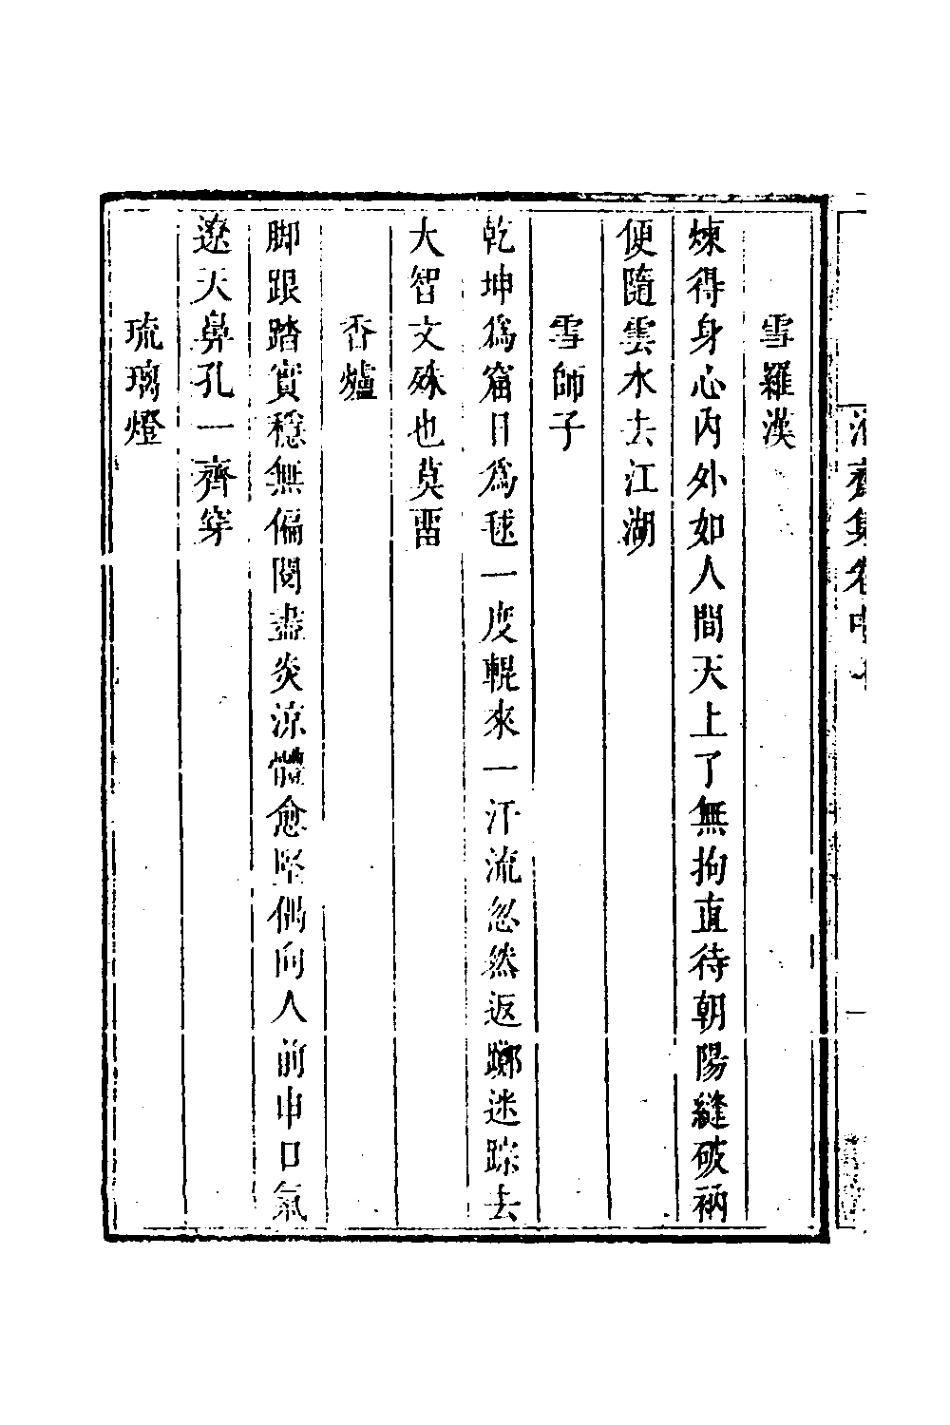 雪羅漢
煉得身心內外如人間天上了無拘直待朝陽縫破衲
便隨雲水去江湖
雪師子
乾坤為窟日為毬一度輥來一汗流忽然返躑迷踪去
大智文殊也莫畱
香爐
脚跟踏實穩無偏閱盡炎涼體愈堅偶向人前申口氣
遼天鼻孔一齊穿
琉璃燈
齋集卷中